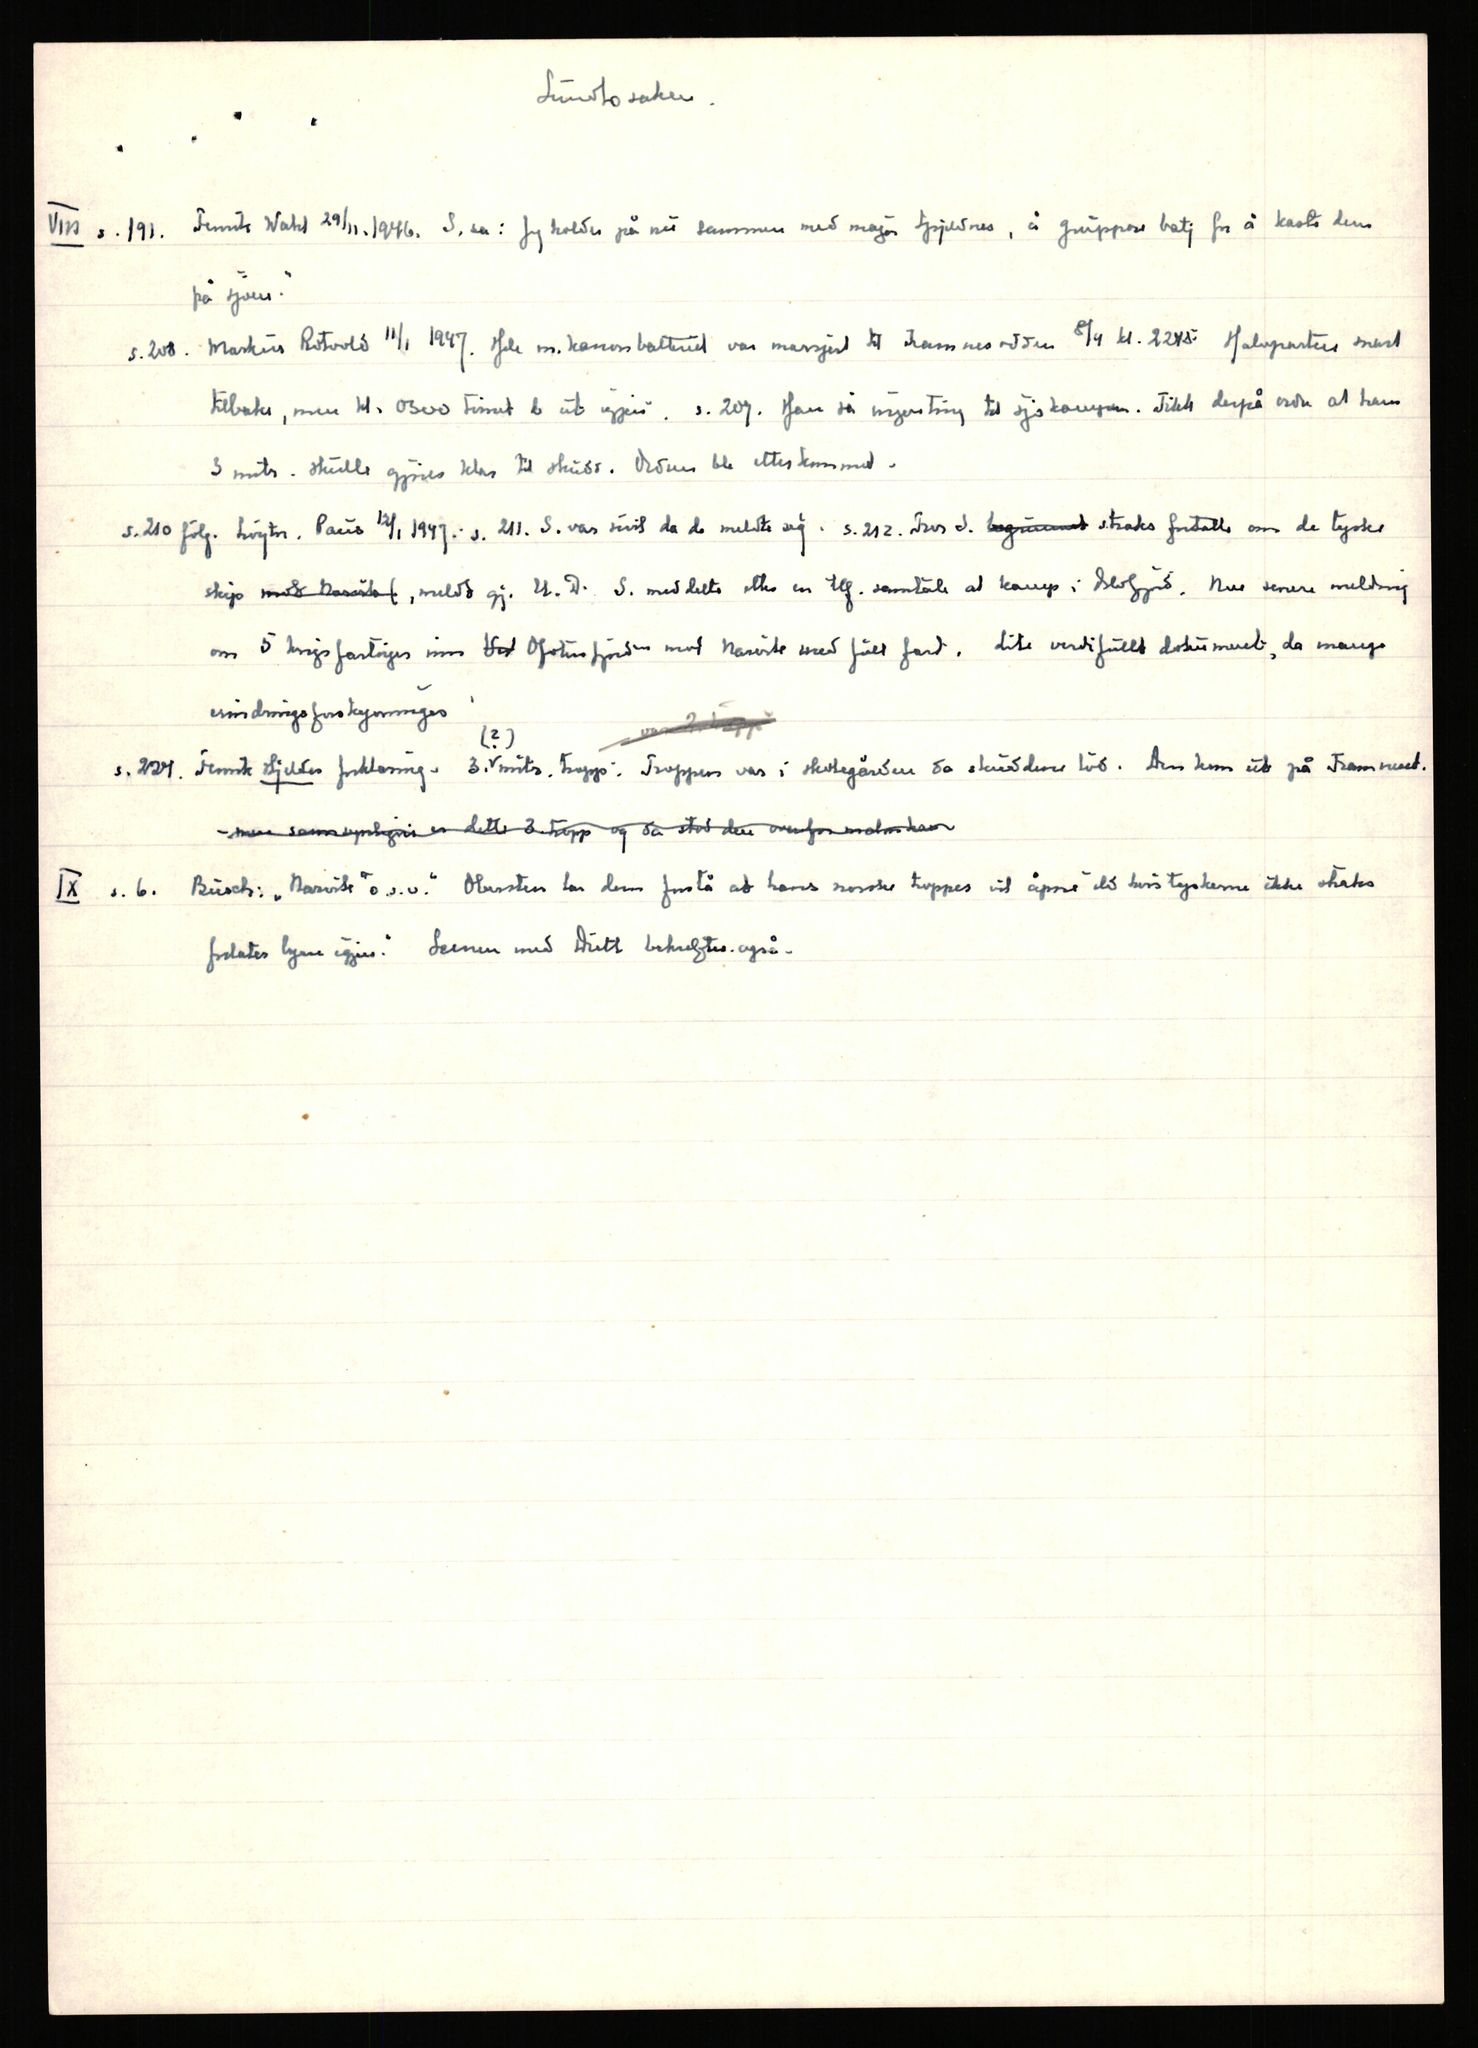 Sundlosaken.
VIII s. 191. Fenrik Wahl 29/11.1946. S. sa: Jeg holder på nå sammen med major Spjeldnes, å gruppere batj for å kaste dem
på sjøen."
s. 208. Markus Rotvold 11/1 1947. Hele m.kanonbatteriet var marsjert til Framnesodden 8/4 kl. 2245. Halvparten snart
tilbake, men kl. 0300 fór de ut igjen. s. 209. Han så ingenting til sjøkampen. Fikk derpå ordre at hans
3 mitr. skulle gjøres klar til skudd. Ordren ble etterkommet.
s. 210 følg. Løytn. Paus 12/1 1947. s. 211. S. var sivil da de meldte seg. s. 212. Tror S. straks fortalte om de tyske
skip mot Narvik, meldt gj. U.D. S. meddelte etter en tlf. samtale at kamp i Oslofjord. Noe senere melding
om 5 krigsfartøyer inn Ofotenfjorden mot Narvik med full fart. Lite verdifullt dokument, da mange
erindringsforskyvninger
(?)
var 2. tropp
s. 224. Fenrik Hjeldes forklaring. 3. mitr. tropp. Troppen var i skolegården da skuddene lød. Den kom ut på Framneset.
- men sannsynligvis er dette 3. tropp og da stod den ovenfor malmkaien
IX s. 6. Busch: „Narvik" o.s.v. Obersten lar dem forstå at hans norske tropper vil åpne ild hvis tyskerne ikke straks
forlater byen igjen." Scenen med Dietl bekreftes også.